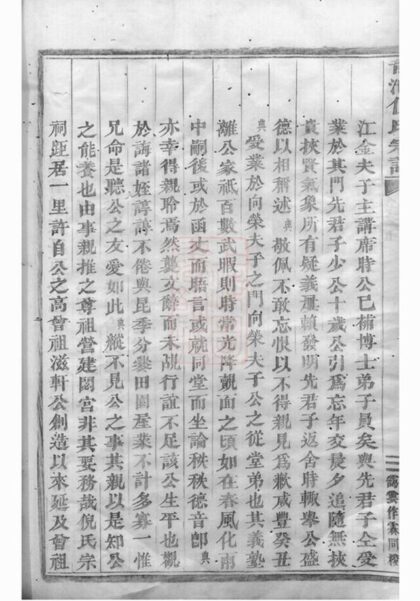 江金夫子主講席時公已補博士弟子員矣與先君子全受
業於其門先君子少公十歲公引為忘年交晨夕追隨無挾
貴挾賢氣象所有疑義並賴發明先君子返舍時輒舉公盛
德以相稱述典敬佩不敢忘恨以不得親見為歉咸豐癸丑
典受業於向榮夫子之門向榮夫子公之從堂弟也其義塾
離公家祗百數武暇則時常光降覿面之頃如在春風化雨
中嗣後或於函丈而晤言或就同堂而坐論秩秩德音卽典
亦幸得親聆焉然襲文餘而未覘行誼不足該公生平也觀
於誨諸姪諄諄不倦與昆季分爨田園產業不計多寡一惟
兄命是聽公之友愛如此典縱不見公之事其親以是知公
之能養也由事親推之尊祖營建閟宮非其要務哉倪氏宗
祠距居一里許自公之高曾祖滋軒公創造以來延及曾祖